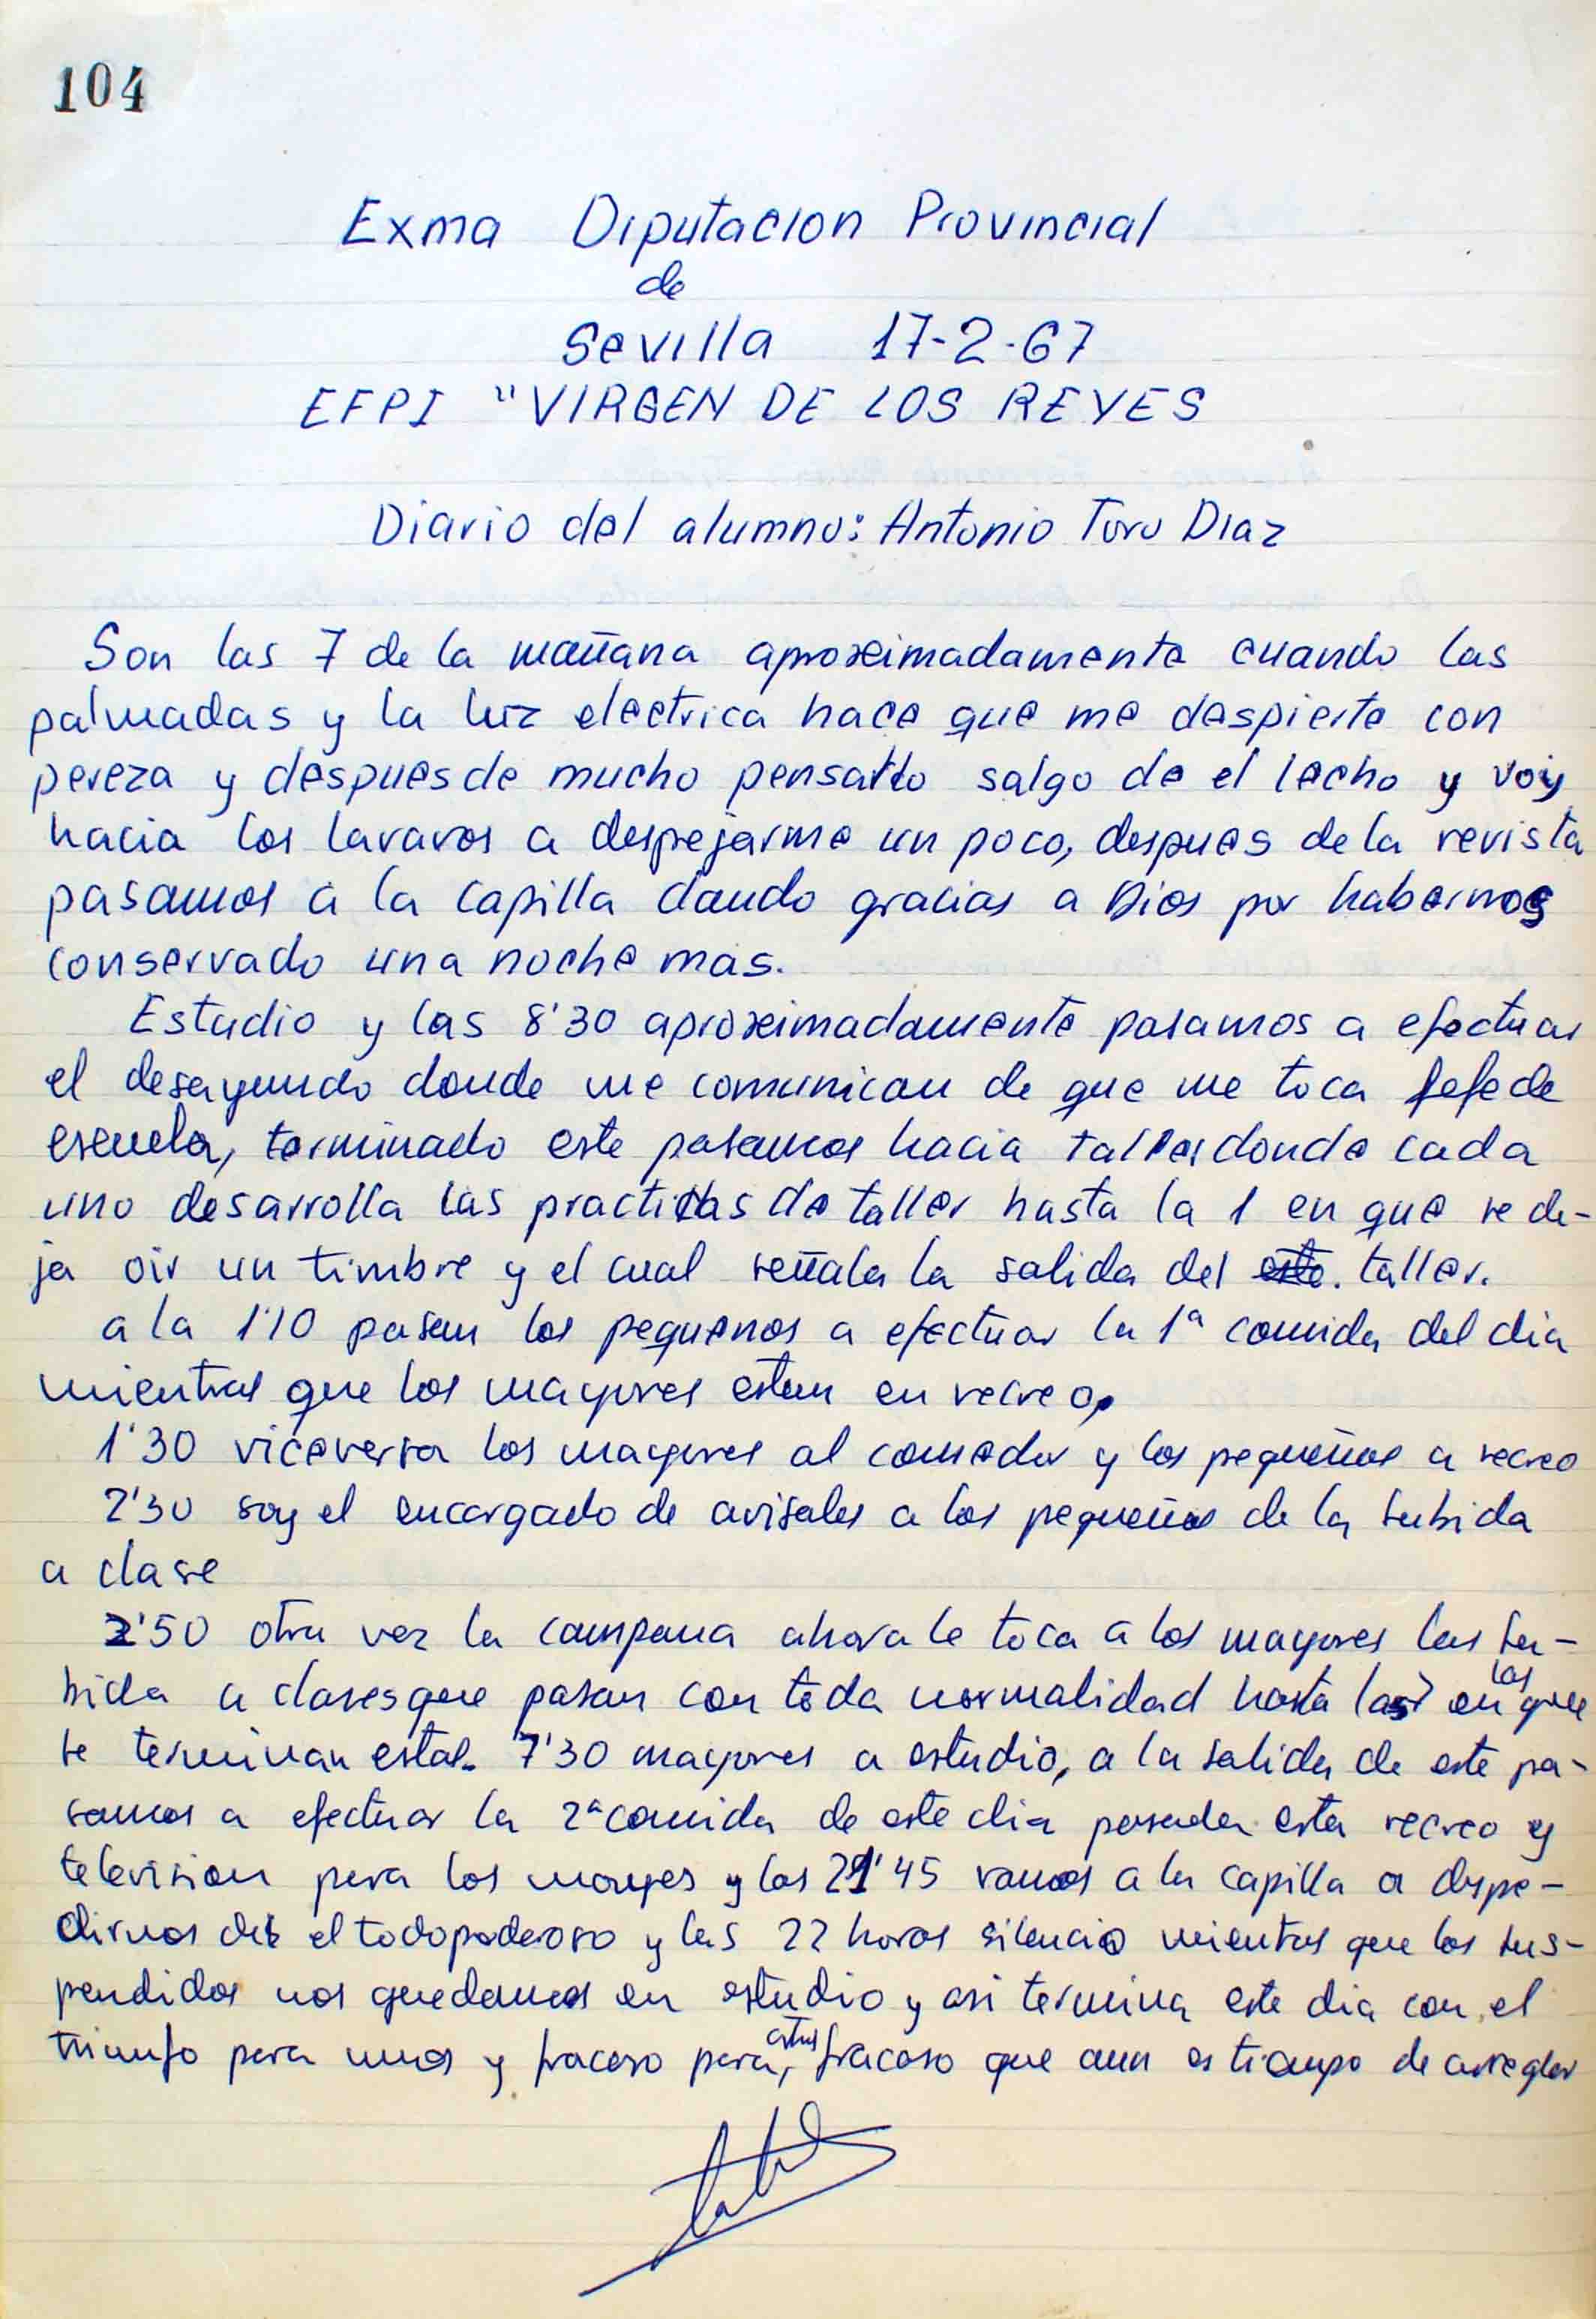 104
Exma Diputacion Provincial
de
Sevilla 17-2-67
EFPI "VIRGEN DE LOS REYES
Diario del alumno: Antonio Toro Diaz
Son las 7 de la mañana aproximadamente cuando las
palmadas y la luz electrica hace que me despierte con
pereza y despues de mucho pensarlo salgo de el lecho y voy
hacia los lavavos a despejarme un poco, despues de la revista
pasamos a la capilla dando gracias a Dios por habernos
conservado una noche mas.
Estudio y las 8'30 aproximadamente pasamos a efectuar
el desayundo donde me comunican de que me toca jefe de
escuela, terminado este pasamos hacia taller donde cada
uno desarrolla las practicas de taller hasta la 1 en que se de-
ja oir un timbre y el cual señala la salida del este. taller.
a la 1'10 pasan los pequenos a efectuar la 1ª comida del dia
mientras que los mayores estan en recreo,
1'30 viceversa los mayores al comedor y los pequeños a recreo
2'30 soy el encargado de avisales a los pequeños de la subida
a clase
2'50 otra vez la campana ahora le toca a los mayores las su-
bida a clases que pasan con toda normalidad hasta las 7 en las que
se terminan estas. 7'30 mayores a estudio, a la salida de este pa-
samos a efectuar la 2ª comida de este dia pasada esta recreo y
television para los mayores y las 21'45 vamos a la capilla a despe-
dirnos de el todopoderoso y las 22 horas silencio mientras que los sus-
pendidos nos quedamos en estudio y asi termina este dia con el
triunfo para unos y fracaso para otros, fracaso que aun es tiempo de arreglar